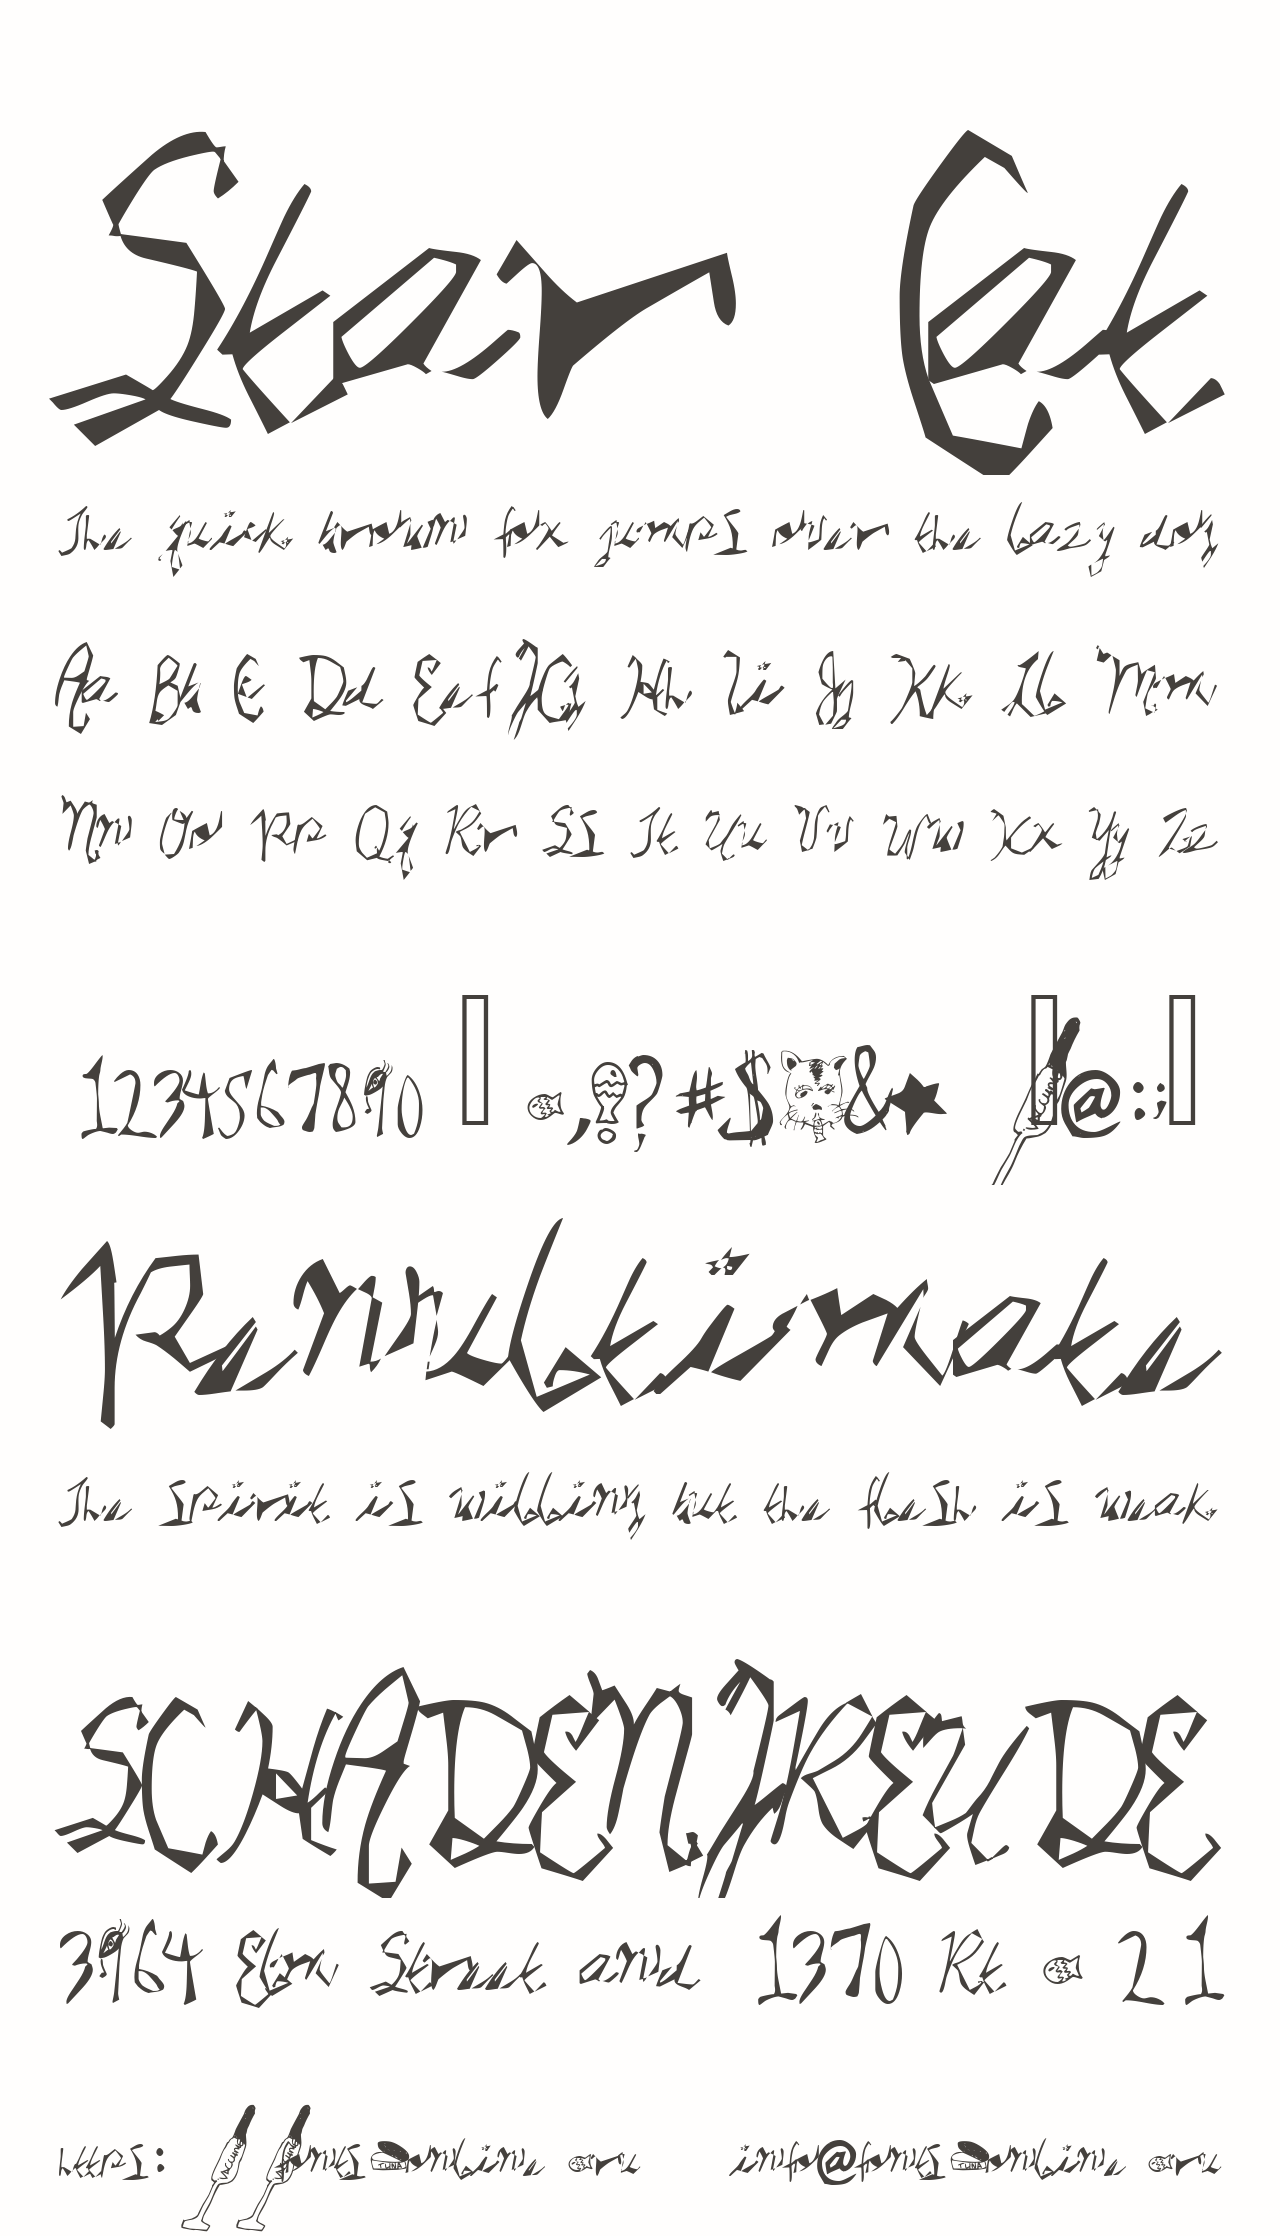 Star Cat
The quick brown fox jumps over the lazy dog
Aa Bb Cc Dd Ee Ff Gg Hh Ii Jj Kk Ll Mm
Nn Oo Pp Qq Rr Ss Tt Uu Vv Ww Xx Yy Zz
1234567890 ,!?#$%&* @:;
Penultimate
The spirit is willing but the flesh is weak
SCHADENFREUDE
3964 Elm Street and 1370 Rt. 21
https://fontsonline.ru info@fontsonline.ru